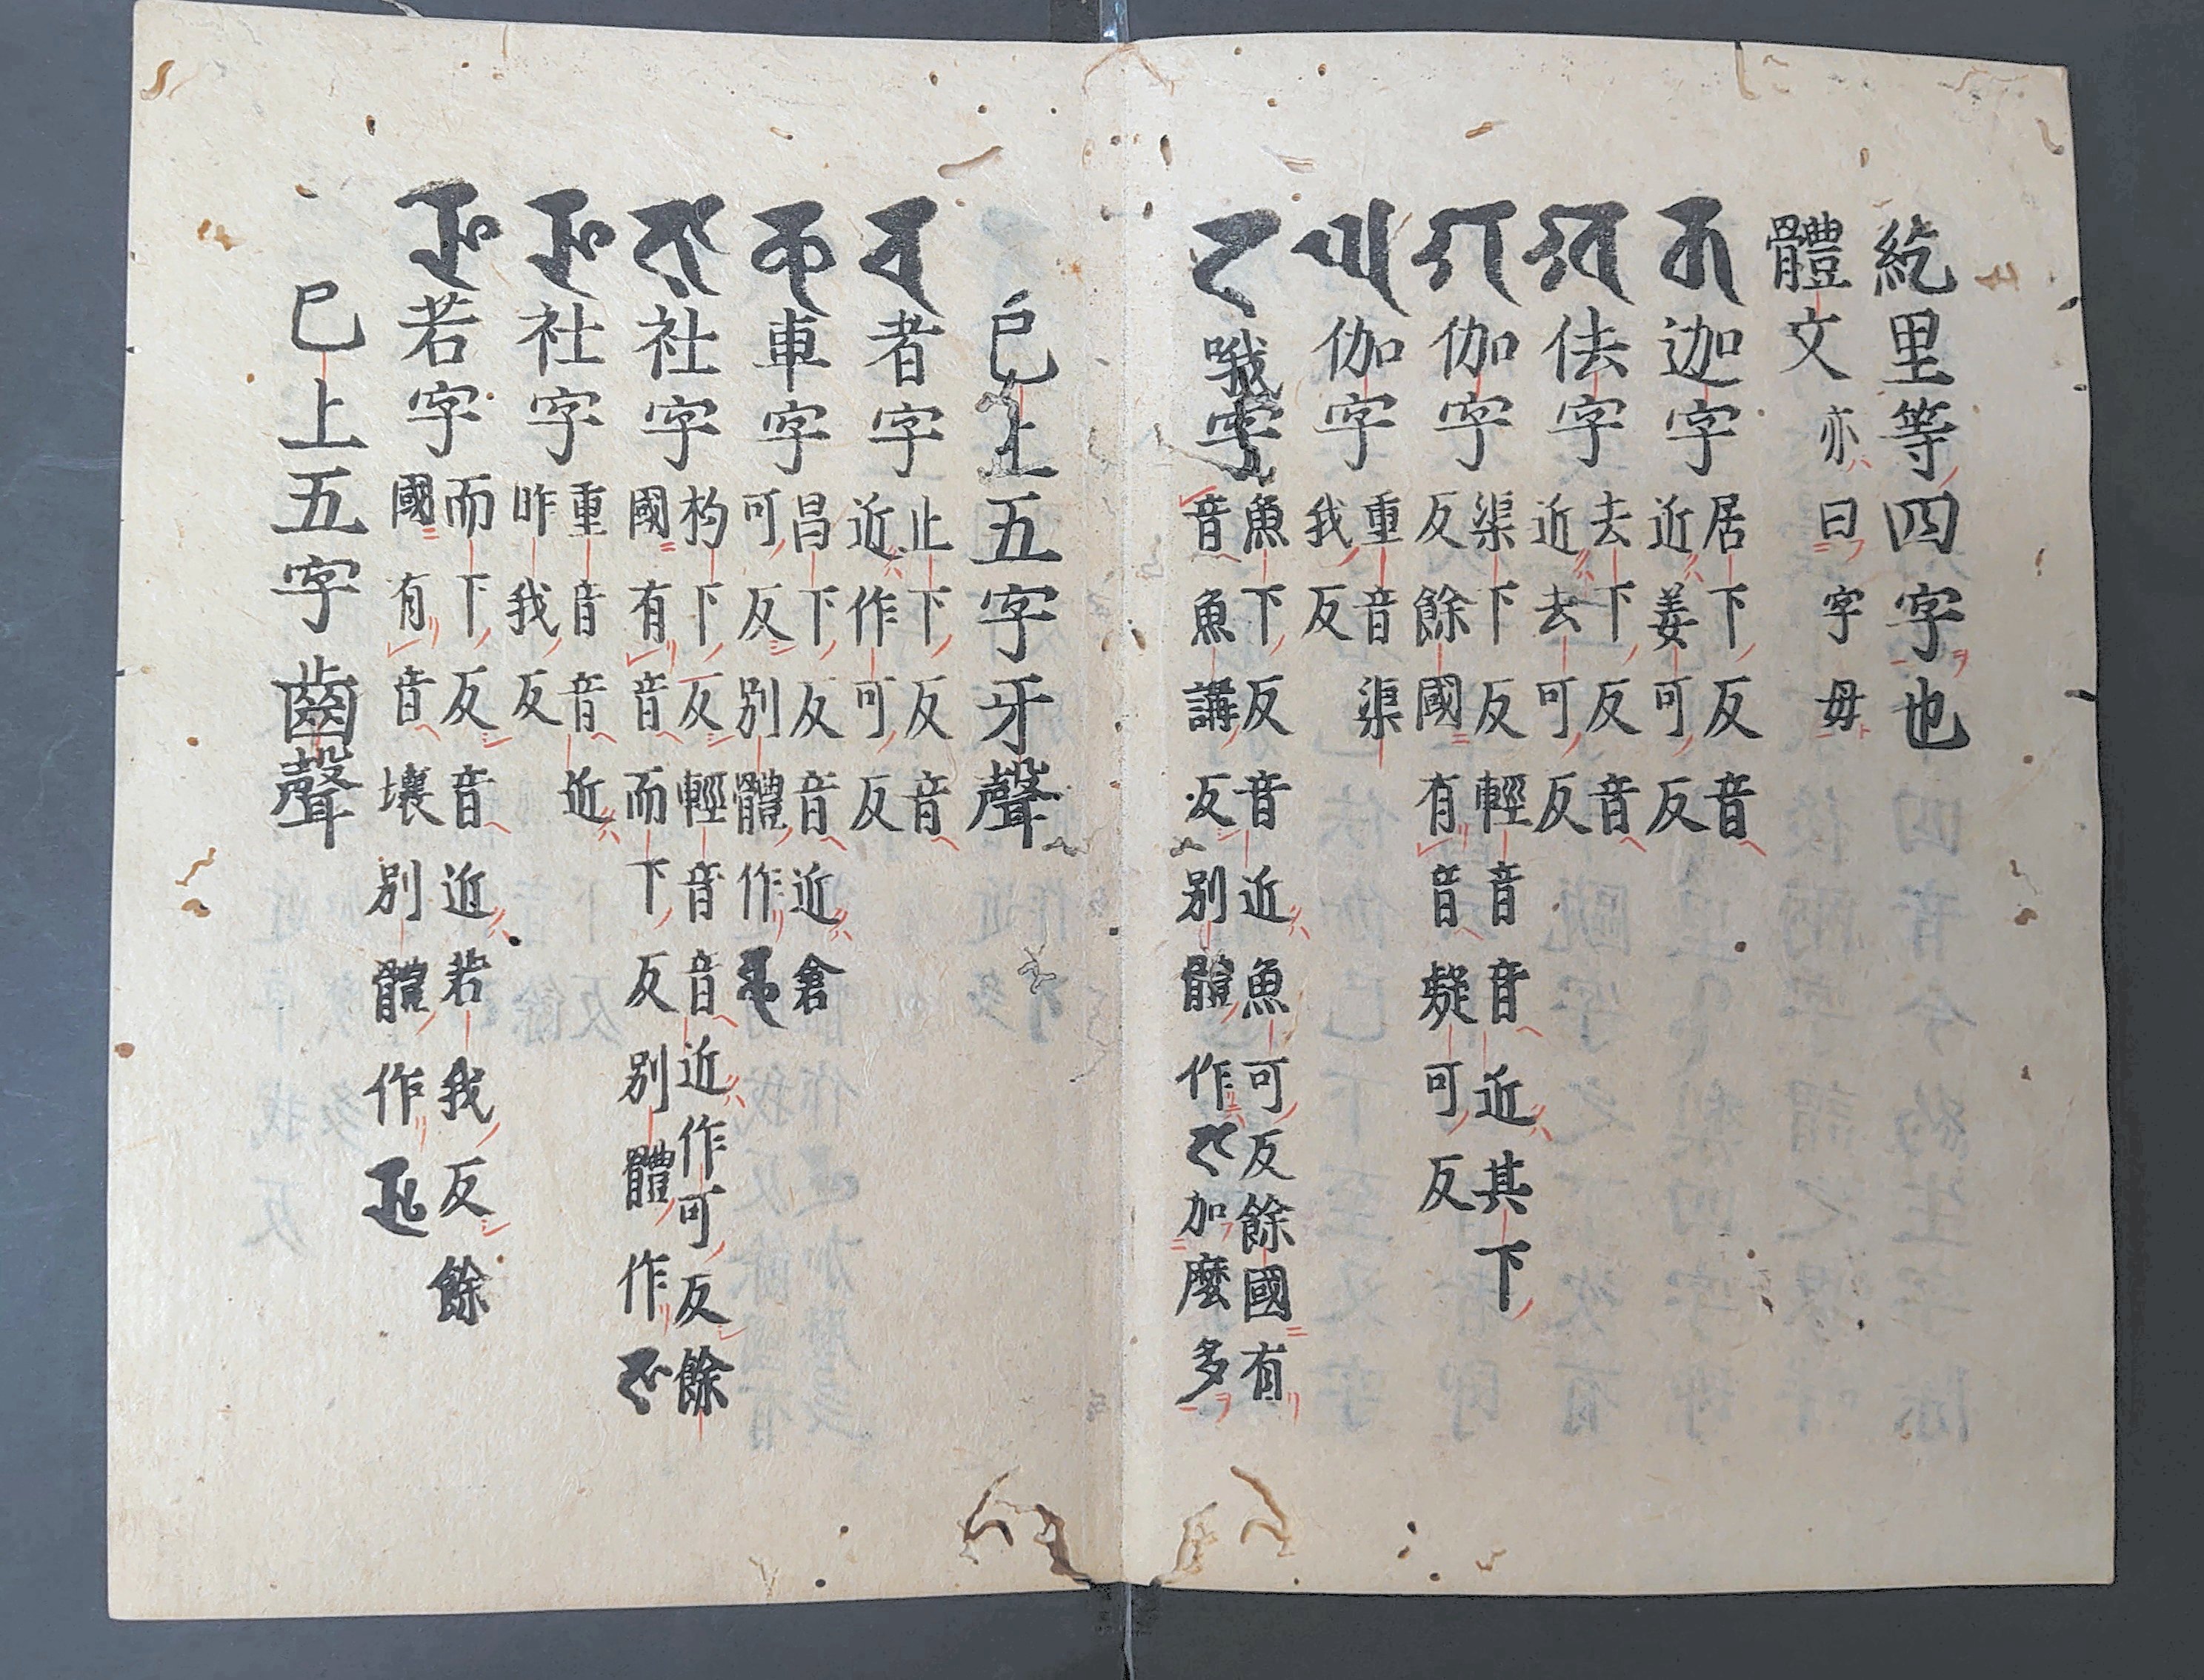 紇里等四字也
體文亦曰字母
𑖎迦字居下反音
近姜可反
𑖏佉字去下反音
近去可反
𑖐伽字渠下反輕音音近其下
反餘國有音疑可反
𑖑伽字重音渠
我反
𑖒哦字魚下反音近魚可反餘國有
音魚講反別體作𑖒加麼多
已上五字牙聲
𑖓者字止下反音
近作可反
𑖔車字昌下反音近倉
可反別體作𑖔
𑖕社字杓下反輕音音近作可反餘
國有音而下反別體作𑖕
𑖖社字重音音近
昨我反
𑖗若字而下反音近若我反餘
國有音壤別體作𑖗
已上五字齒聲